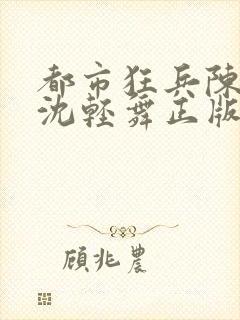 都市狂兵陳
沈輕舞正版
顧兆農